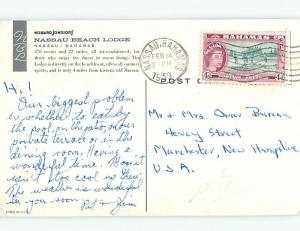 HOWARD JOHNSON'S
NASSAU BEACH LODGE
NASSAU · BAHAMAS
270 rooms and 22 suites, all air-conditioned, for
those who enjoy the finest in resort living. The
Lodge is directly on the beachfront, all
sports, and is only 4 miles from historic old Nassau.
NASSAU · BAHAMAS
FEB 14
- PM
1959
BAHAMAS
4d
POST
Hi!
Our biggest problem
is whether to eat by
the pool, on the patio, on our
private terrace or in the
dining room. Having a
wonderful time. Hope it
isn't too cool up there.
The weather is wonderful
See you soon.
Pat & Jim
Mr & Mrs. Omer Bureau
Hevey Street
Manchester, New Hampshire
U.S.A.